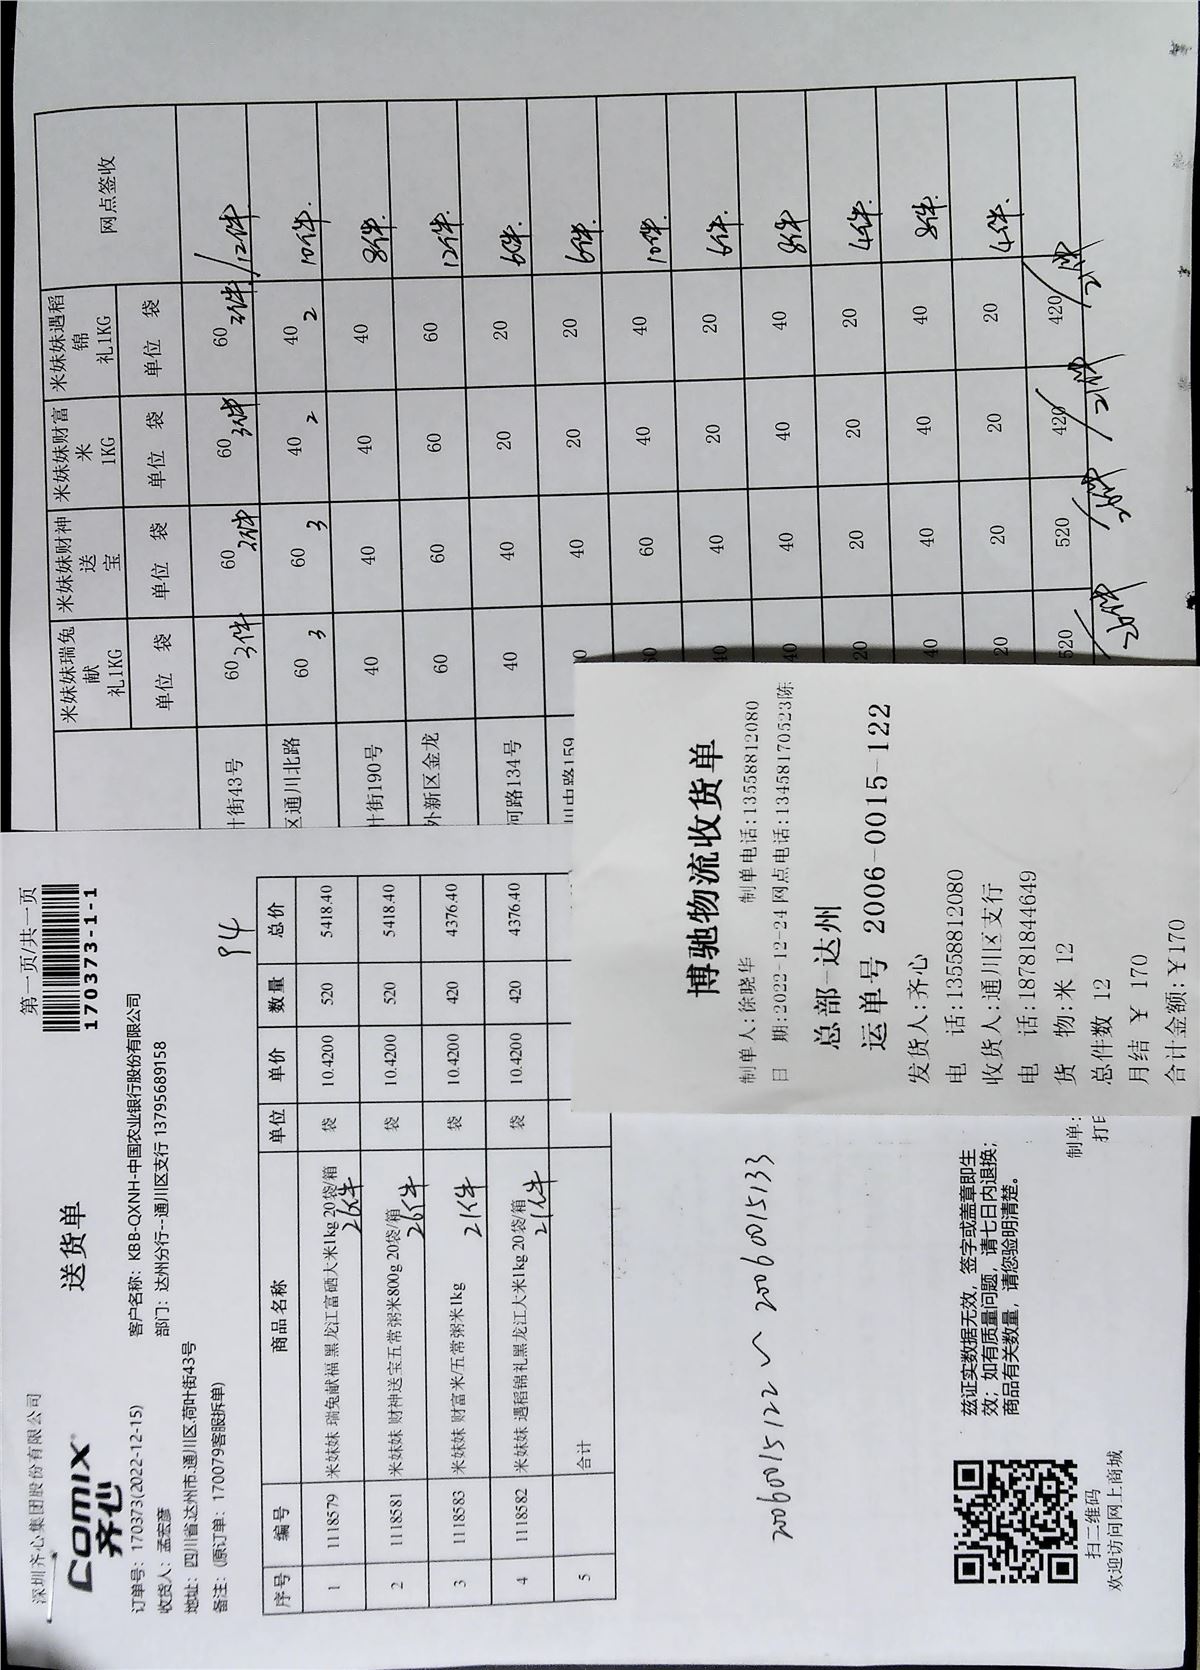 深圳齐心集团股份有限公司
comix
齐心
送货单
第一页/共一页
170373-1-1
订单号：170373(2022-12-15)
客户名称：KBB-QXNH-中国农业银行股份有限公司
收货人：孟宏彦
部门：达州分行--通川区支行 13795689158
地址：四川省达州市.通川区.荷叶街43号
备注：(原订单：170079客服拆单)
94
序号 编号 商品名称 单位 单价 数量 总价
1 1118579 米妹妹 瑞兔献福 黑龙江富硒大米1kg 20袋/箱 袋 10.4200 520 5418.40
26件
2 1118581 米妹妹 财神送宝五常粥米800g 20袋/箱 袋 10.4200 520 5418.40
26件
3 1118583 米妹妹 财富米/五常粥米1kg 袋 10.4200 420 4376.40
21件
4 1118582 米妹妹 遇稻锦礼黑龙江大米1kg 20袋/箱 袋 10.4200 420 4376.40
21件
5 合计
20060015122～20060015133
兹证实数据无效，签字或盖章即生
效；如有质量问题，请七日内退换；
商品有关数量，请您验明清楚。
制单：
打印
扫二维码
欢迎访问网上商城
博驰物流收货单
制单人:徐晓华 制单电话:13558812080
日 期:2022-12-24 网点电话:13458170523陈
总部-达州
运单号 2006-0015-122
发货人:齐心
电 话:13558812080
收货人:通川区支行
电 话:18781844649
货 物:米 12
总件数 12
月结 ￥ 170
合计金额:￥170
米妹妹瑞兔献礼1KG 米妹妹财神送宝 米妹妹财富米1KG 米妹妹遇稻锦礼1KG 网点签收
单位 袋 单位 袋 单位 袋 单位 袋
叶街43号 60 3件 60 3件 60 3件 60 3件 /12件
区通川北路 60 3 60 3 40 2 40 2 10件.
叶街190号 40 40 40 40 8件
外新区金龙 60 60 60 60 12件.
河路134号 40 40 20 20 6件.
川中路159 40 20 20 6件.
60 40 40 10件.
40 40 20 20 6件.
40 40 40 40 8件
20 20 20 20 4件.
40 40 40 40 8件.
20 20 20 20 4件.
520 520 420 420
/26件 /26件 /21件 /21件